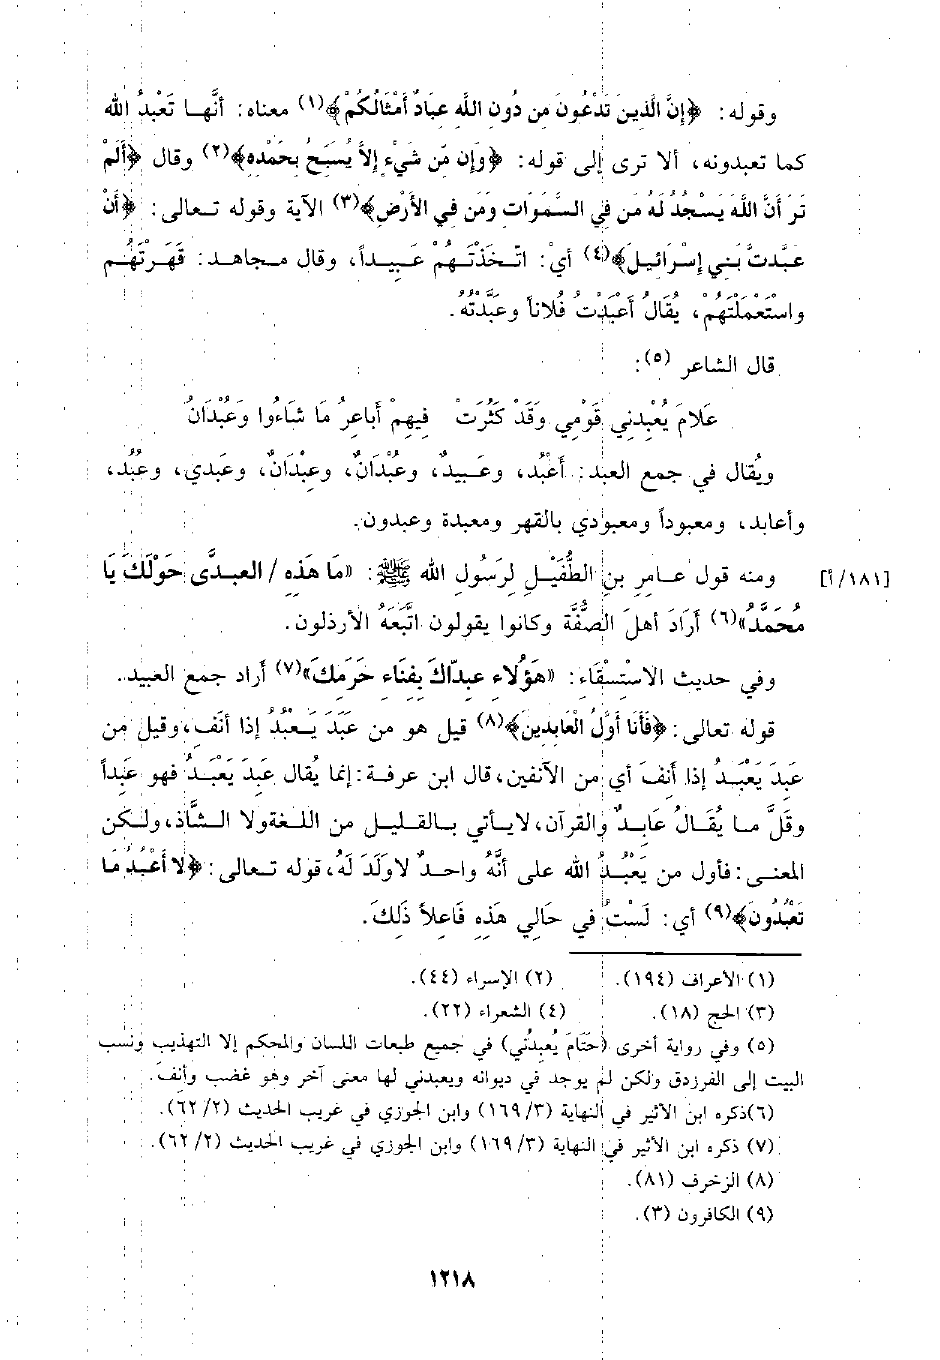 وقوله: ﴿إِنَّ الَّذِينَ تَدْعُونَ مِن دُونِ اللَّهِ عِبَادٌ أَمْثَالُكُمْ﴾(١) معناه: أنَّهـا تَعْبدُ الله
كما تعبدونه، ألا ترى إلى قوله: ﴿وَإِن مِّن شَيْءٍ إلاَّ يُسَبِّحُ بِحَمْدِهِ﴾(٢) وقال ﴿أَلَمْ
تَرَ أَنَّ اللَّهَ يَسْجُدُ لَهُ مَن فِي السَّمَوَاتِ وَمَن فِي الأَرْضِ﴾(٣) الآية وقوله تـعالى: ﴿أَنْ
عَبَّدتَّ بَنِي إِسْرَائِيلَ﴾(٤) أيْ: اتـخَذْتَـهُمْ عَـبِيـداً، وقال مـجاهـد: قَهَـرْتَهُـم
واسْتَعْمَلْتَهُمْ، يُقَالُ أَعْبَدْتُ فُلاناً وعَبَّدْتُهُ.
قال الشاعر (٥):
عَلامَ يُعْبِدنِي قَوْمِي وَقَدْ كَثُرَتْ فِيهِمْ أَباعِرُ مَا شَاءُوا وَعُبْدَانُ
ويُقال في جمع العبد: أَعْبُد، وعَـبِيدٌ، وعُبْدَانٌ، وعِبْدَانٌ، وعَبدي، وعُبُد،
وأعابد، ومعبوداً ومعبودي بالقهر ومعبدة وعبدون.
ومنه قول عـامِرِ بنِ الطُّفَيْـلِ لِرَسُولِ الله ﷺ: «مَا هَذِهِ / العِبـدَّى حَوْلَكَ يَا
[١٨١/أ]
مُحَمَّدُ»(٦) أَرَادَ أهلَ الصُّفَّة وكانوا يقولون اتَّبَعَهُ الأرذلون.
وفي حديث الاسْتِسْقَاءِ: «هَؤُلاءِ عبدَّاكَ بِفنَاءِ حَرَمِكَ»(٧) أراد جمع العبيد.
قوله تعالى: ﴿فَأَنَا أَوَّلُ الْعَابِدِينَ﴾(٨) قيل هو من عَبَدَ يَـعْبُدُ إذا أَنَف، وقيل من
عَبِدَ يَعْبَـدُ إذا أَنِفَ أي من الآنفين، قال ابن عرفـة: إنما يُقال عَبِدَ يَعْبَـدُ فهو عَبِداً
وقلَّ مـا يُقَـالُ عَابِـدٌ والقرآن، لايـأتي بـالقليـل من اللـغة ولا الـشَّاذ، ولـكن
المعنـى: فأول من يَعْبُـدُ الله على أنَّهُ واحـدٌ لاوَلَدَ لَهُ، قوله تـعالى: ﴿لا أَعْبُدُ مَا
تَعْبُدُونَ﴾(٩) أي: لَسْتُ في حَالِي هَذِهِ فَاعِلاً ذَلِكَ.
(١) الأعراف (١٩٤). (٢) الإسراء (٤٤).
(٣) الحج (١٨). (٤) الشعراء (٢٢).
(٥) وفي رواية أخرى (حَتَامَ يُعبدُني) في جميع طبعات اللسان والمحكم إلا التهذيب ونسب
البيت إلى الفرزدق ولكن لم يوجد في ديوانه ويعبدني لها معنى آخر وهو غضب وأنِف.
(٦) ذكره ابن الأثير في النهاية (٣/ ١٦٩) وابن الجوزي في غريب الحديث (٢/ ٦٢).
(٧) ذكره ابن الأثير في النهاية (٣/ ١٦٩) وابن الجوزي في غريب الحديث (٢/ ٦٢).
(٨) الزخرف (٨١).
(٩) الكافرون (٣).
١٢١٨